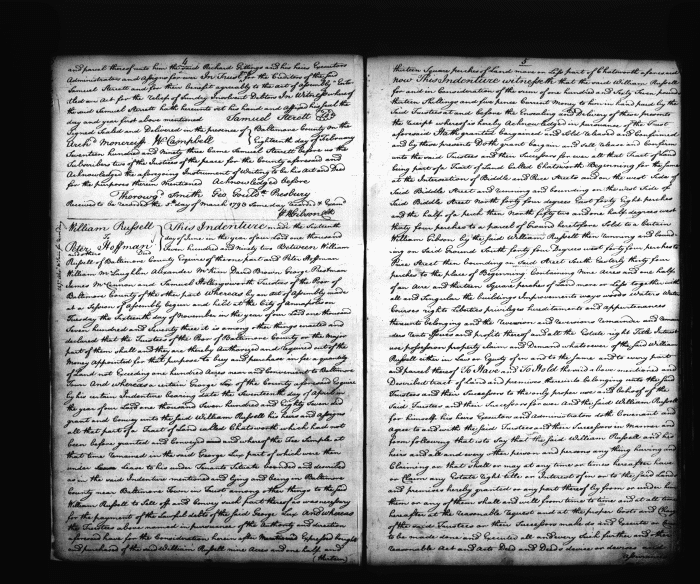 4
and parcel thereof unto him the said Richard Gittings and his heirs Executors
Administrators and Assigns for ever In Trust for the Creditors of the said
Samuel Sterett and for their benefit agreeably to the act of assembly Entitled
an Act for the relief of sundry Insolvent Debtors In Witness whereof
the said Samuel Sterett has hereunto set his hand and affixed his seal the
day and year first above mentioned Samuel Sterett
Signed Sealed and Delivered in the presence of Baltimore County on the
Archd Moncreiff W Campbell Eighteenth day of February
Seventeen hundred and Ninety three Came Samuel Sterett before us
Subscribers two of the Justices of the peace for the County aforesaid and
Acknowledge the aforegoing Instrument of Writing to be his Act and Deed
for the purposes therein Mentioned Acknowledged before
Thorowgd Smith Geo Gould Presbury
Received to be recorded the 5th day of March 1793 same day recorded & Examd
William Russell This Indenture made the Sixteenth
to day of June in the year of our Lord one thousand
Peter Hoffman Seven hundred and ninety two Between William
and others Deed
Russell of Baltimore County Esquire of the one part and Peter Hoffman
William McLaughlin Alexander McKim David Brown George Prestman
James McCannon and Samuel Hollingsworth Trustees of the Poor of
Baltimore County of the other part Whereas by an act of Assembly made
at a Session of Assembly begun and held at the City of Annapolis on
Tuesday the Sixteenth day of November in the year of our Lord one thousand
Seven hundred and seventy three it is among other things enacted and
declared that the Trustees of the Poor of Baltimore County or the Major
part of them shall and they are thereby Authorized and required out of the
Money appointed for that purpose to buy and purchase in fee a quantity
of Land not Exceeding one hundred Acres near and Convenient to Baltimore
Town And whereas a certain George Lux of the County aforesaid Esquire
by his certain Indenture bearing date the Seventeenth day of April in
the year of our Lord one thousand Seven hundred and Eighty Seven did
grant and Convey unto the said William Russell his heirs and assigns
all that part of a Tract of Land called Chatsworth which had not
been before granted and Conveyed and whereof the Fee Simple at
that time remained in the said George Lux part of which were then
under Lease to his under Tenants Situate bounded and described
as in the said Indenture mentioned and lying and being in Baltimore
County near Baltimore Town in Trust among other things to the said
William Russell to Sell off and Convey such part thereof as necessary
for the payments of the Lawful debts of the said George Lux And whereas
the Trustees above named in pursuance of the Authority and direction
aforesaid have for the Consideration herein after Mentioned Expressed bought
and purchased of the said William Russell nine Acres and one half and
thirteen
5
thirteen Square perches of Land more or Less part of Chatsworth aforesaid
now This Indenture witnesseth that the said William Russell
for and in Consideration of the sum of one hundred and forty Seven pounds
thirteen Shillings and five pence Current Money to him in hand paid by the
said Trustees at and before the Ensealing and Delivery of these presents
the receipt whereof is hereby Acknowledged in pursuance of the Trust
aforesaid Hath granted bargained and Sold released and Confirmed
and by these presents Doth grant bargain and sell release and Confirm
unto the said Trustees and their Successors for ever all that Tract of Land
being part of a Tract of Land called Chatsworth Beginning for the same
at the Intersection of Biddle and Ross Street and on the West side of
said Biddle Street and running and bounding on the West side of
said Biddle Street North forty four degrees East forty Eight perches
and the half of a perch then North fifty two and one half degrees West
thirty four perches to a parcel of Ground heretofore Sold to a Certain
William Gibson by the said William Russell then running and bounding
on said Ground South forty four degrees West forty four perches to
Ross Street then bounding on said Street South Easterly thirty four
perches to the place of Beginning Containing Nine Acres and one half
of an Acre and thirteen Square perches of Land more or Less together with
all and Singular the buildings Improvements ways woods Waters Water
Courses rights Liberties privileges hereditaments and appurtenances
thereunto belonging and the Reversion and Reversions remainder and remainders
Rents Issues and profits thereof and all the Estate right Title Interest
use possession property claim and Demand whatsoever of the said William
Russell either in Law or Equity of in and to the same and to every part
and parcel thereof To Have and To Hold the said above mentioned and
Described tract of Land and premises therewith belonging unto the said
Trustees and their Successors to the only proper use and behoof of the
said Trustees and their Successors for ever And the said William Russell
for himself his heirs Executors and Administrators doth Covenant and
agree to and with the said Trustees and their Successors in Manner and
form following that is to Say that the said William Russell and his
heirs and all and every other person and persons any thing having and
Claiming or that shall or may at any time or times hereafter have
or Claim any Estate right title or Interest of in or to the said Land
and premises hereby granted or any part thereof by from or under him
them or any of them shall and will from time to time and at all times
hereafter at the reasonable request and at the proper Costs and Charge
of the said Trustees or their Successors make do and Execute or Cause
to be made done and Executed all and every such further and other
reasonable Act and Acts Deed and Deeds device or devices and